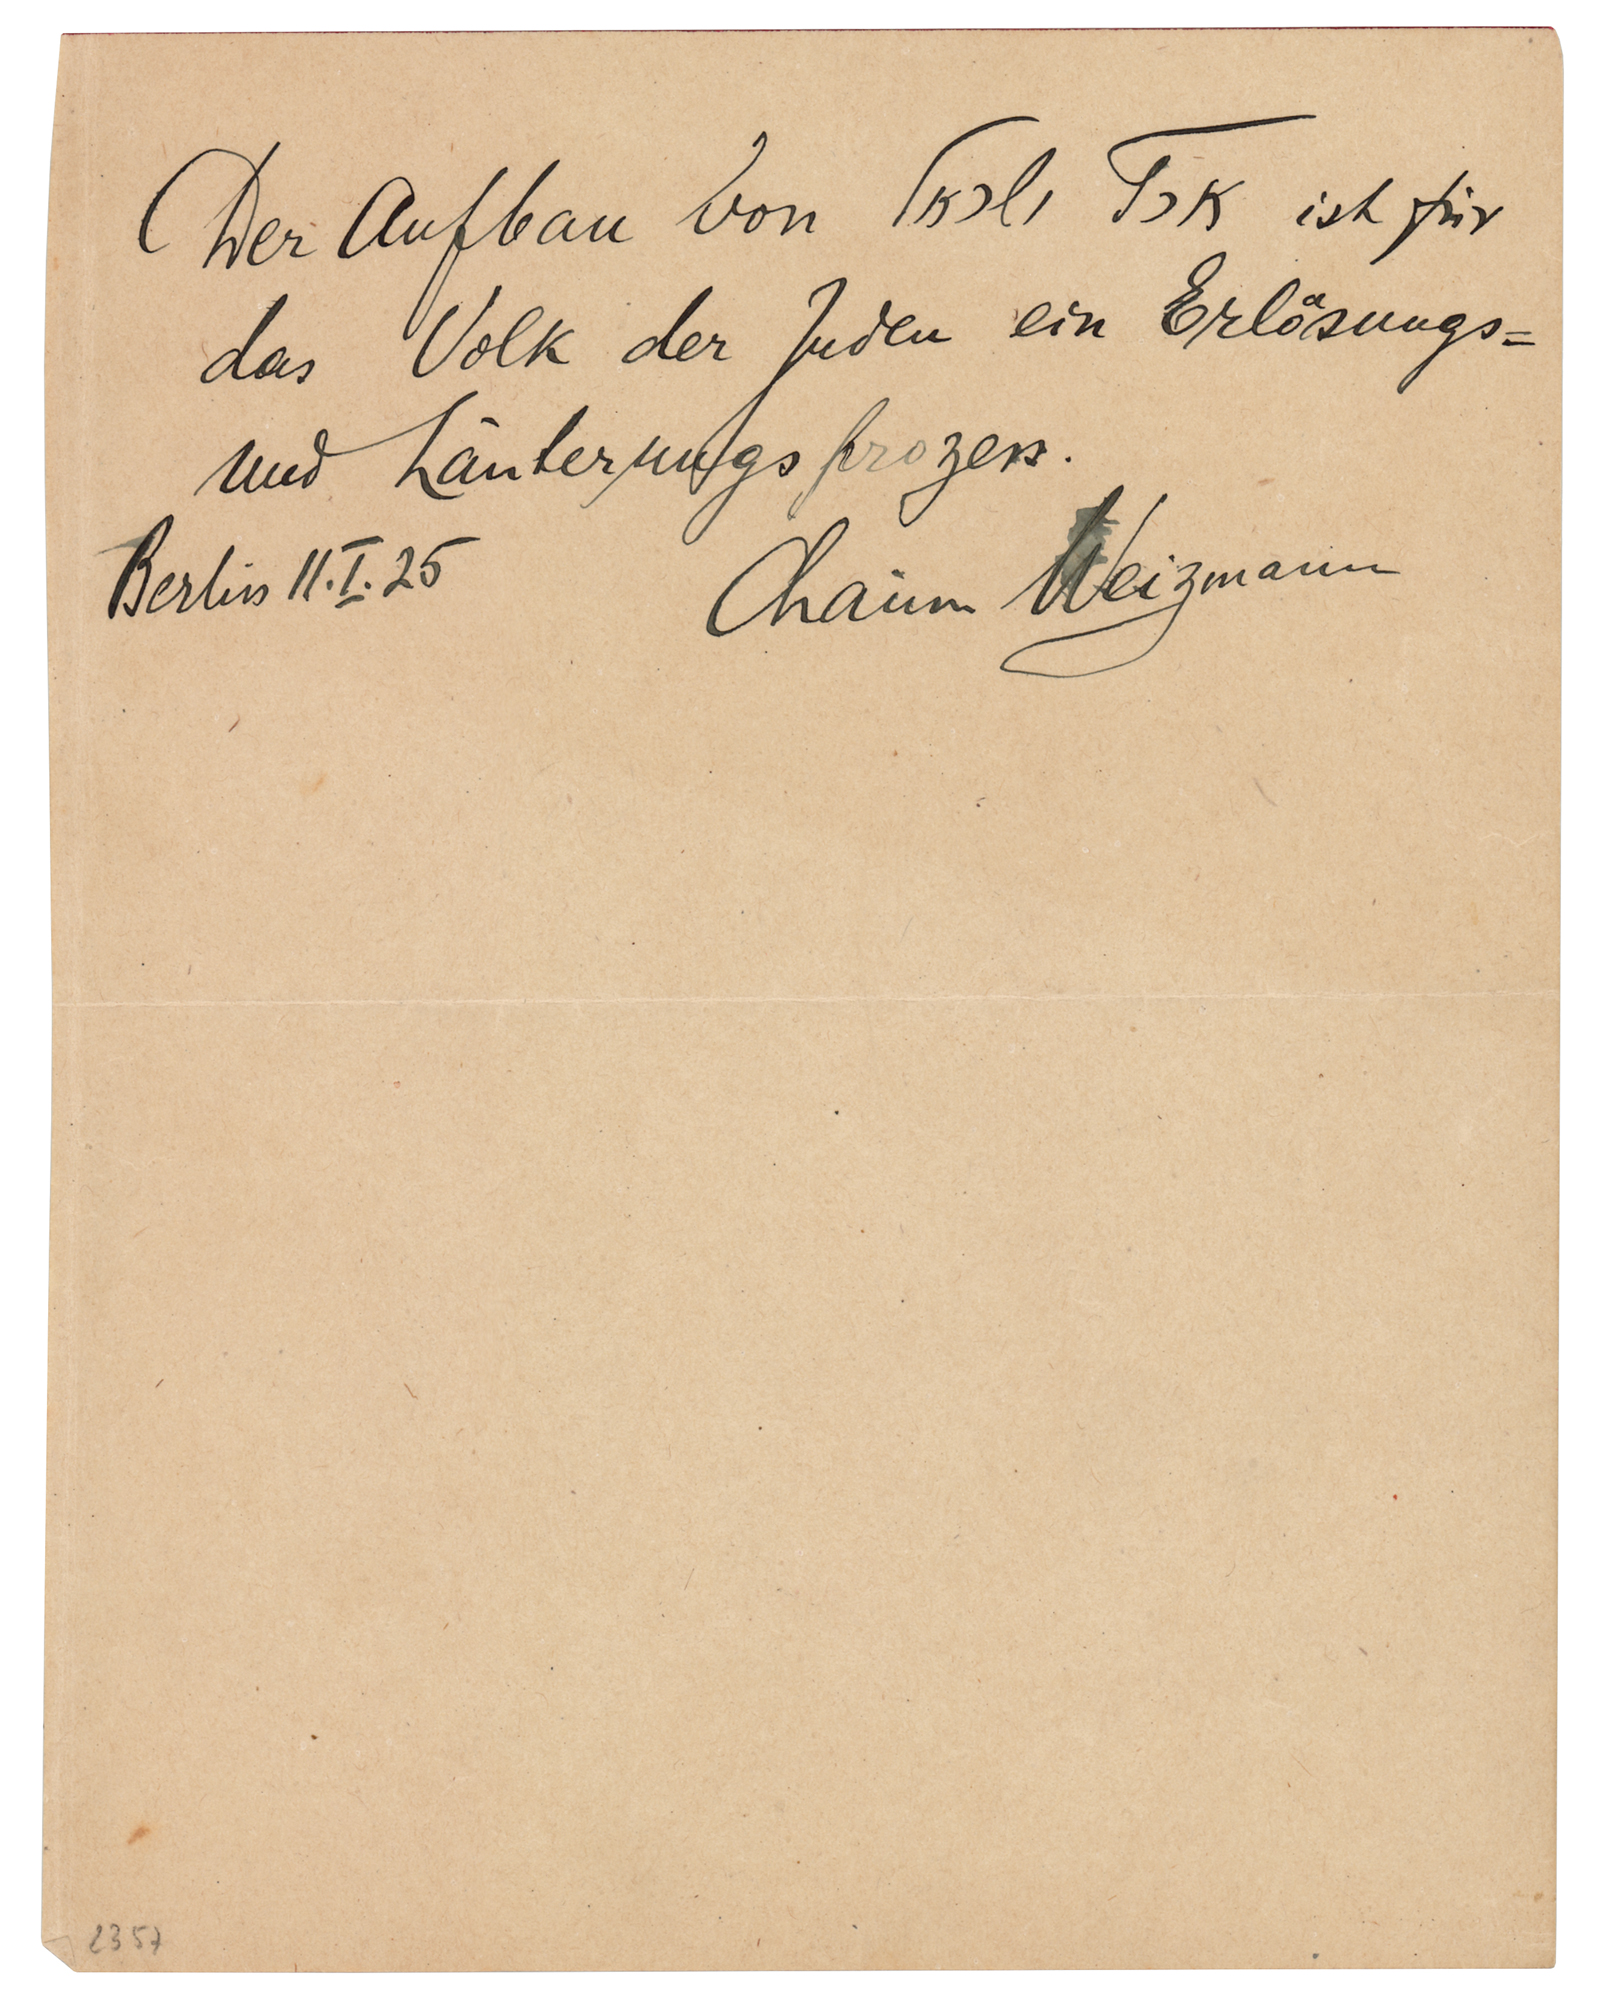 Der Aufbau von ארץ ישראל ist für
das Volk der Juden ein Erlösungs=
und Läuterungsprozess.
Berlin 11.I.25 Chaim Weizmann
2357